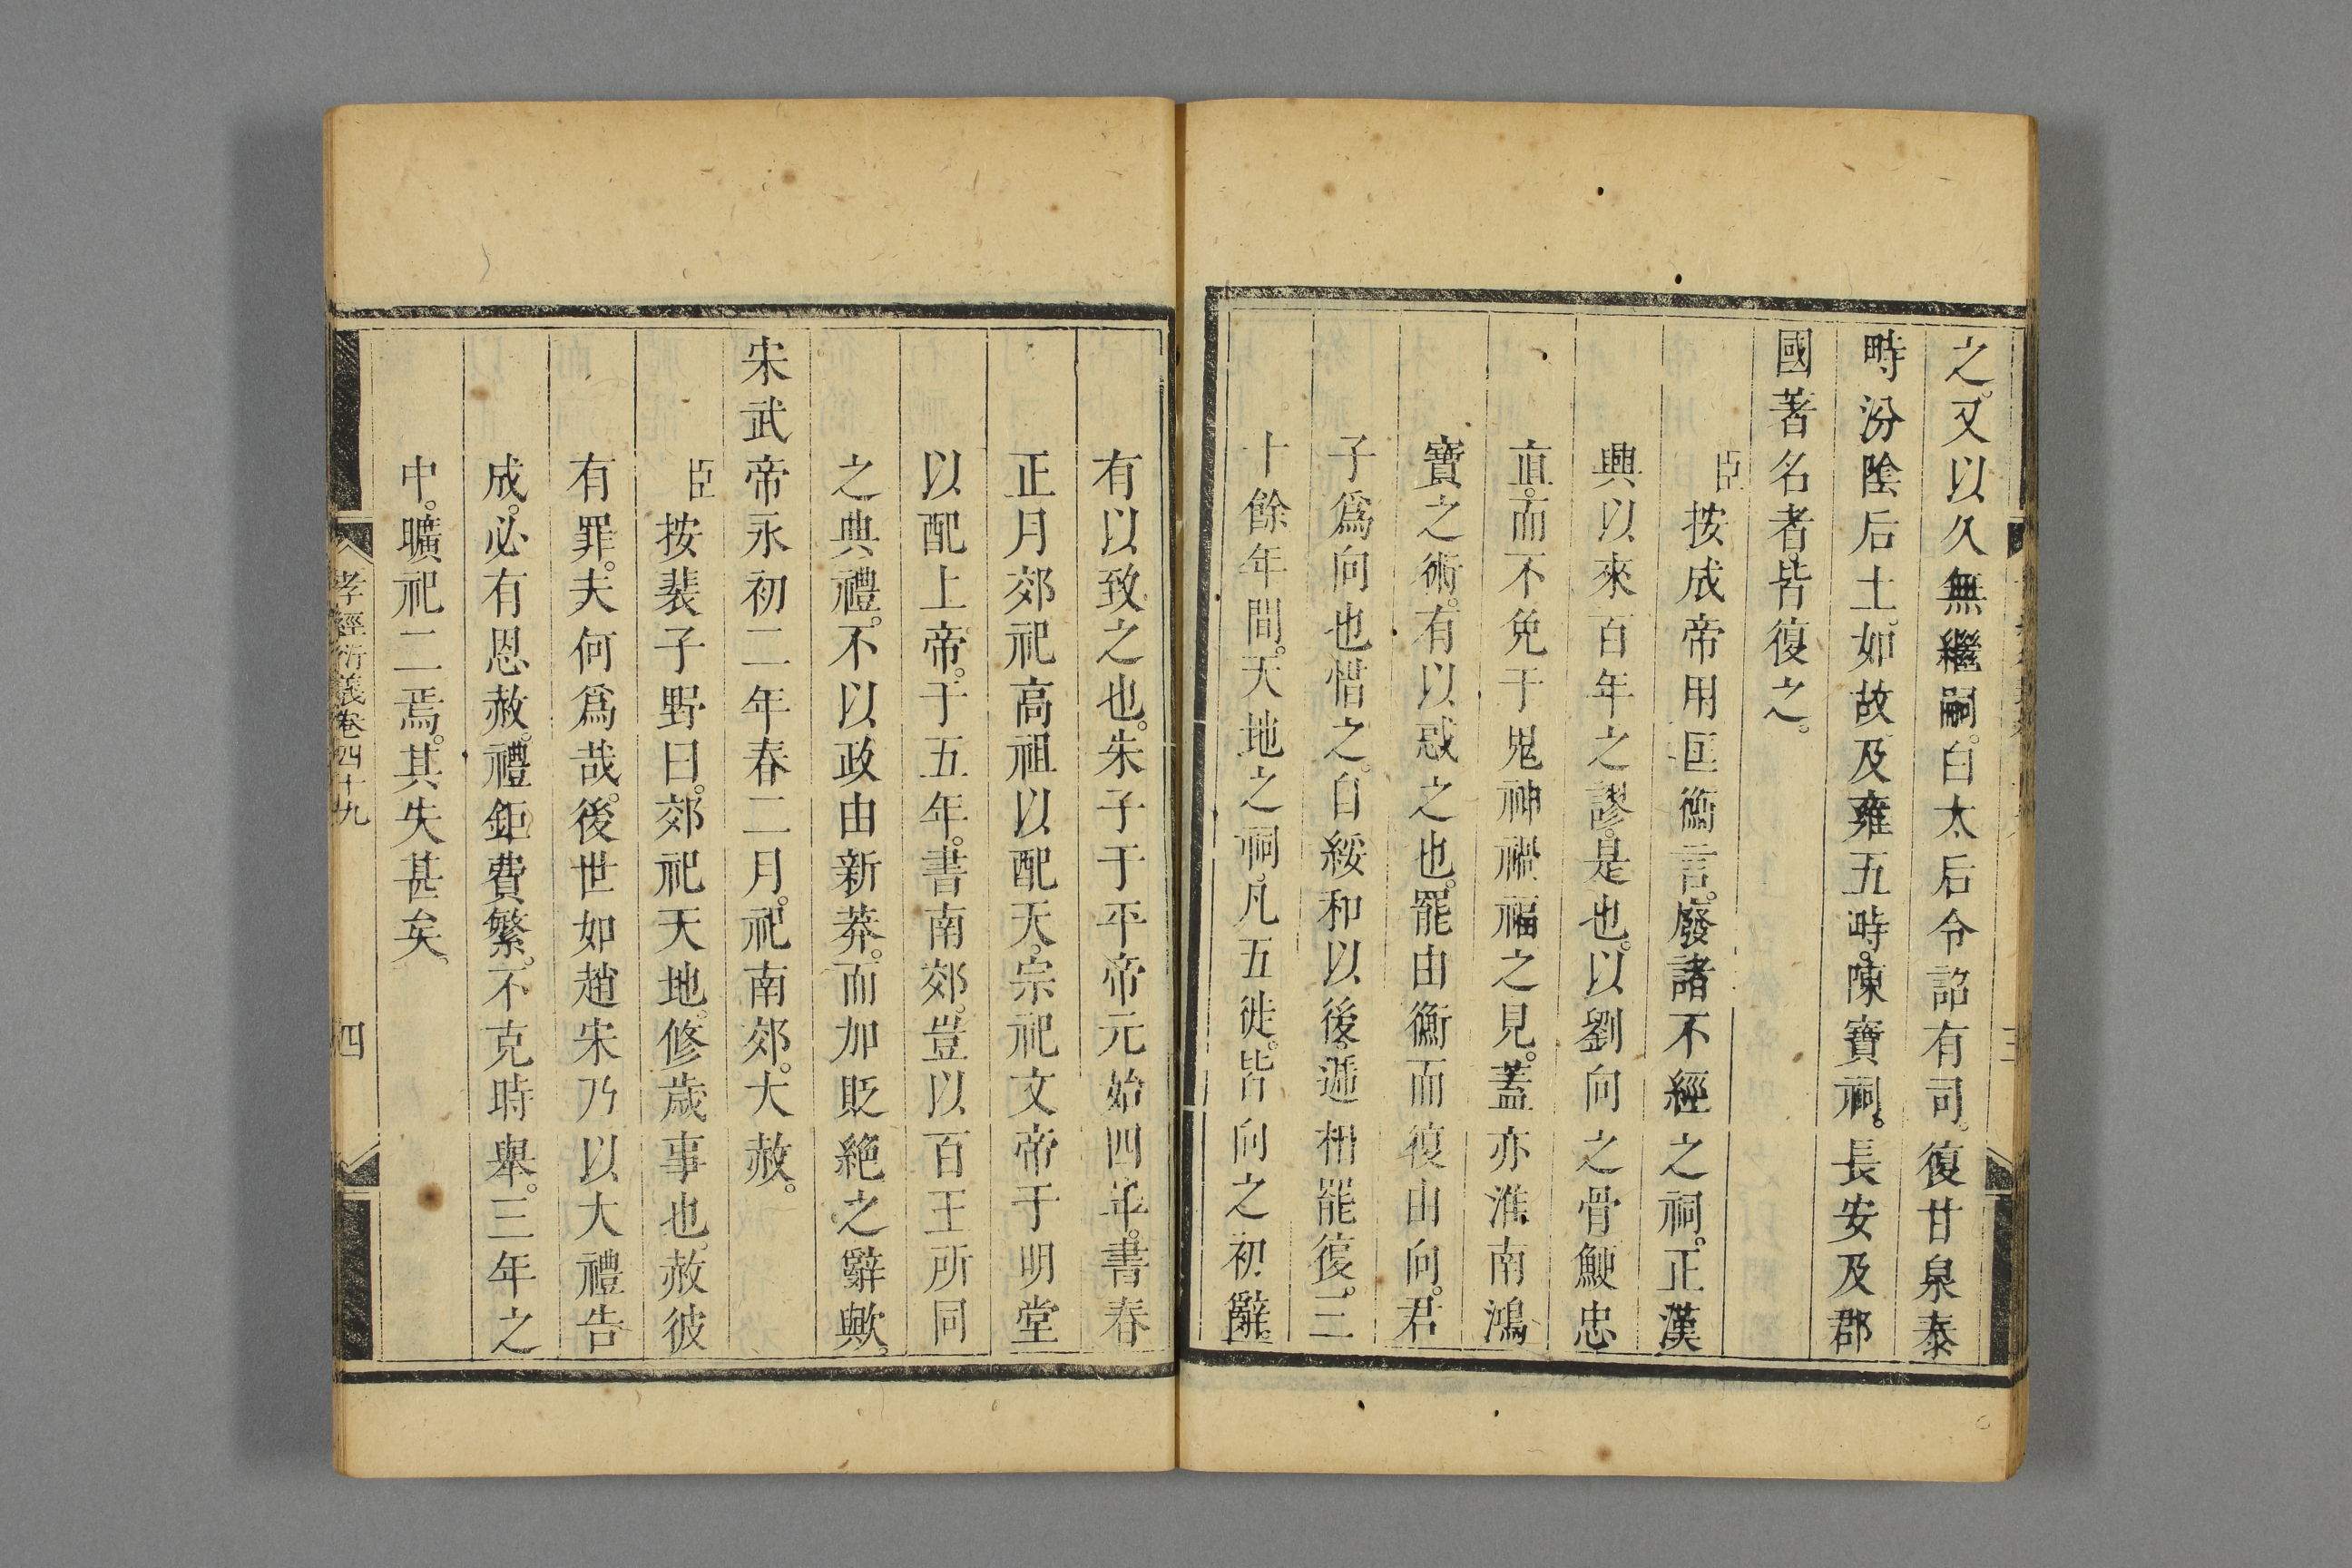 之。又以久無繼嗣。白太后令詔有司。復甘泉泰
畤汾陰后土。如故。及雍五畤。陳寶祠。長安及郡
國著名者。皆復之。
臣按成帝用匡衡言。廢諸不經之祠。正漢
興以來百年之謬。是也。以劉向之骨鯁忠
直。而不免于鬼神禍福之見。蓋亦淮南鴻
寶之術。有以惑之也。罷由衡而復由向。君
子爲向也惜之。自綏和以後。遞相罷復。三
十餘年間。天地之祠。凡五徙。皆向之初辭。
有以致之也。朱子于平帝元始四年。書春
正月郊祀高祖以配天。宗祀文帝于明堂
以配上帝。于五年。書南郊。豈以百王所同
之典禮。不以政由新莽。而加貶絶之辭歟。
宋武帝永初二年春二月。祀南郊。大赦。
臣按裴子野曰。郊祀天地。修歲事也。赦彼
有罪。夫何爲哉。後世如趙宋乃以大禮告
成。必有恩赦。禮鉅費繁。不克時舉。三年之
中。曠祀二焉。其失甚矣。
孝經衍義卷四十九
四